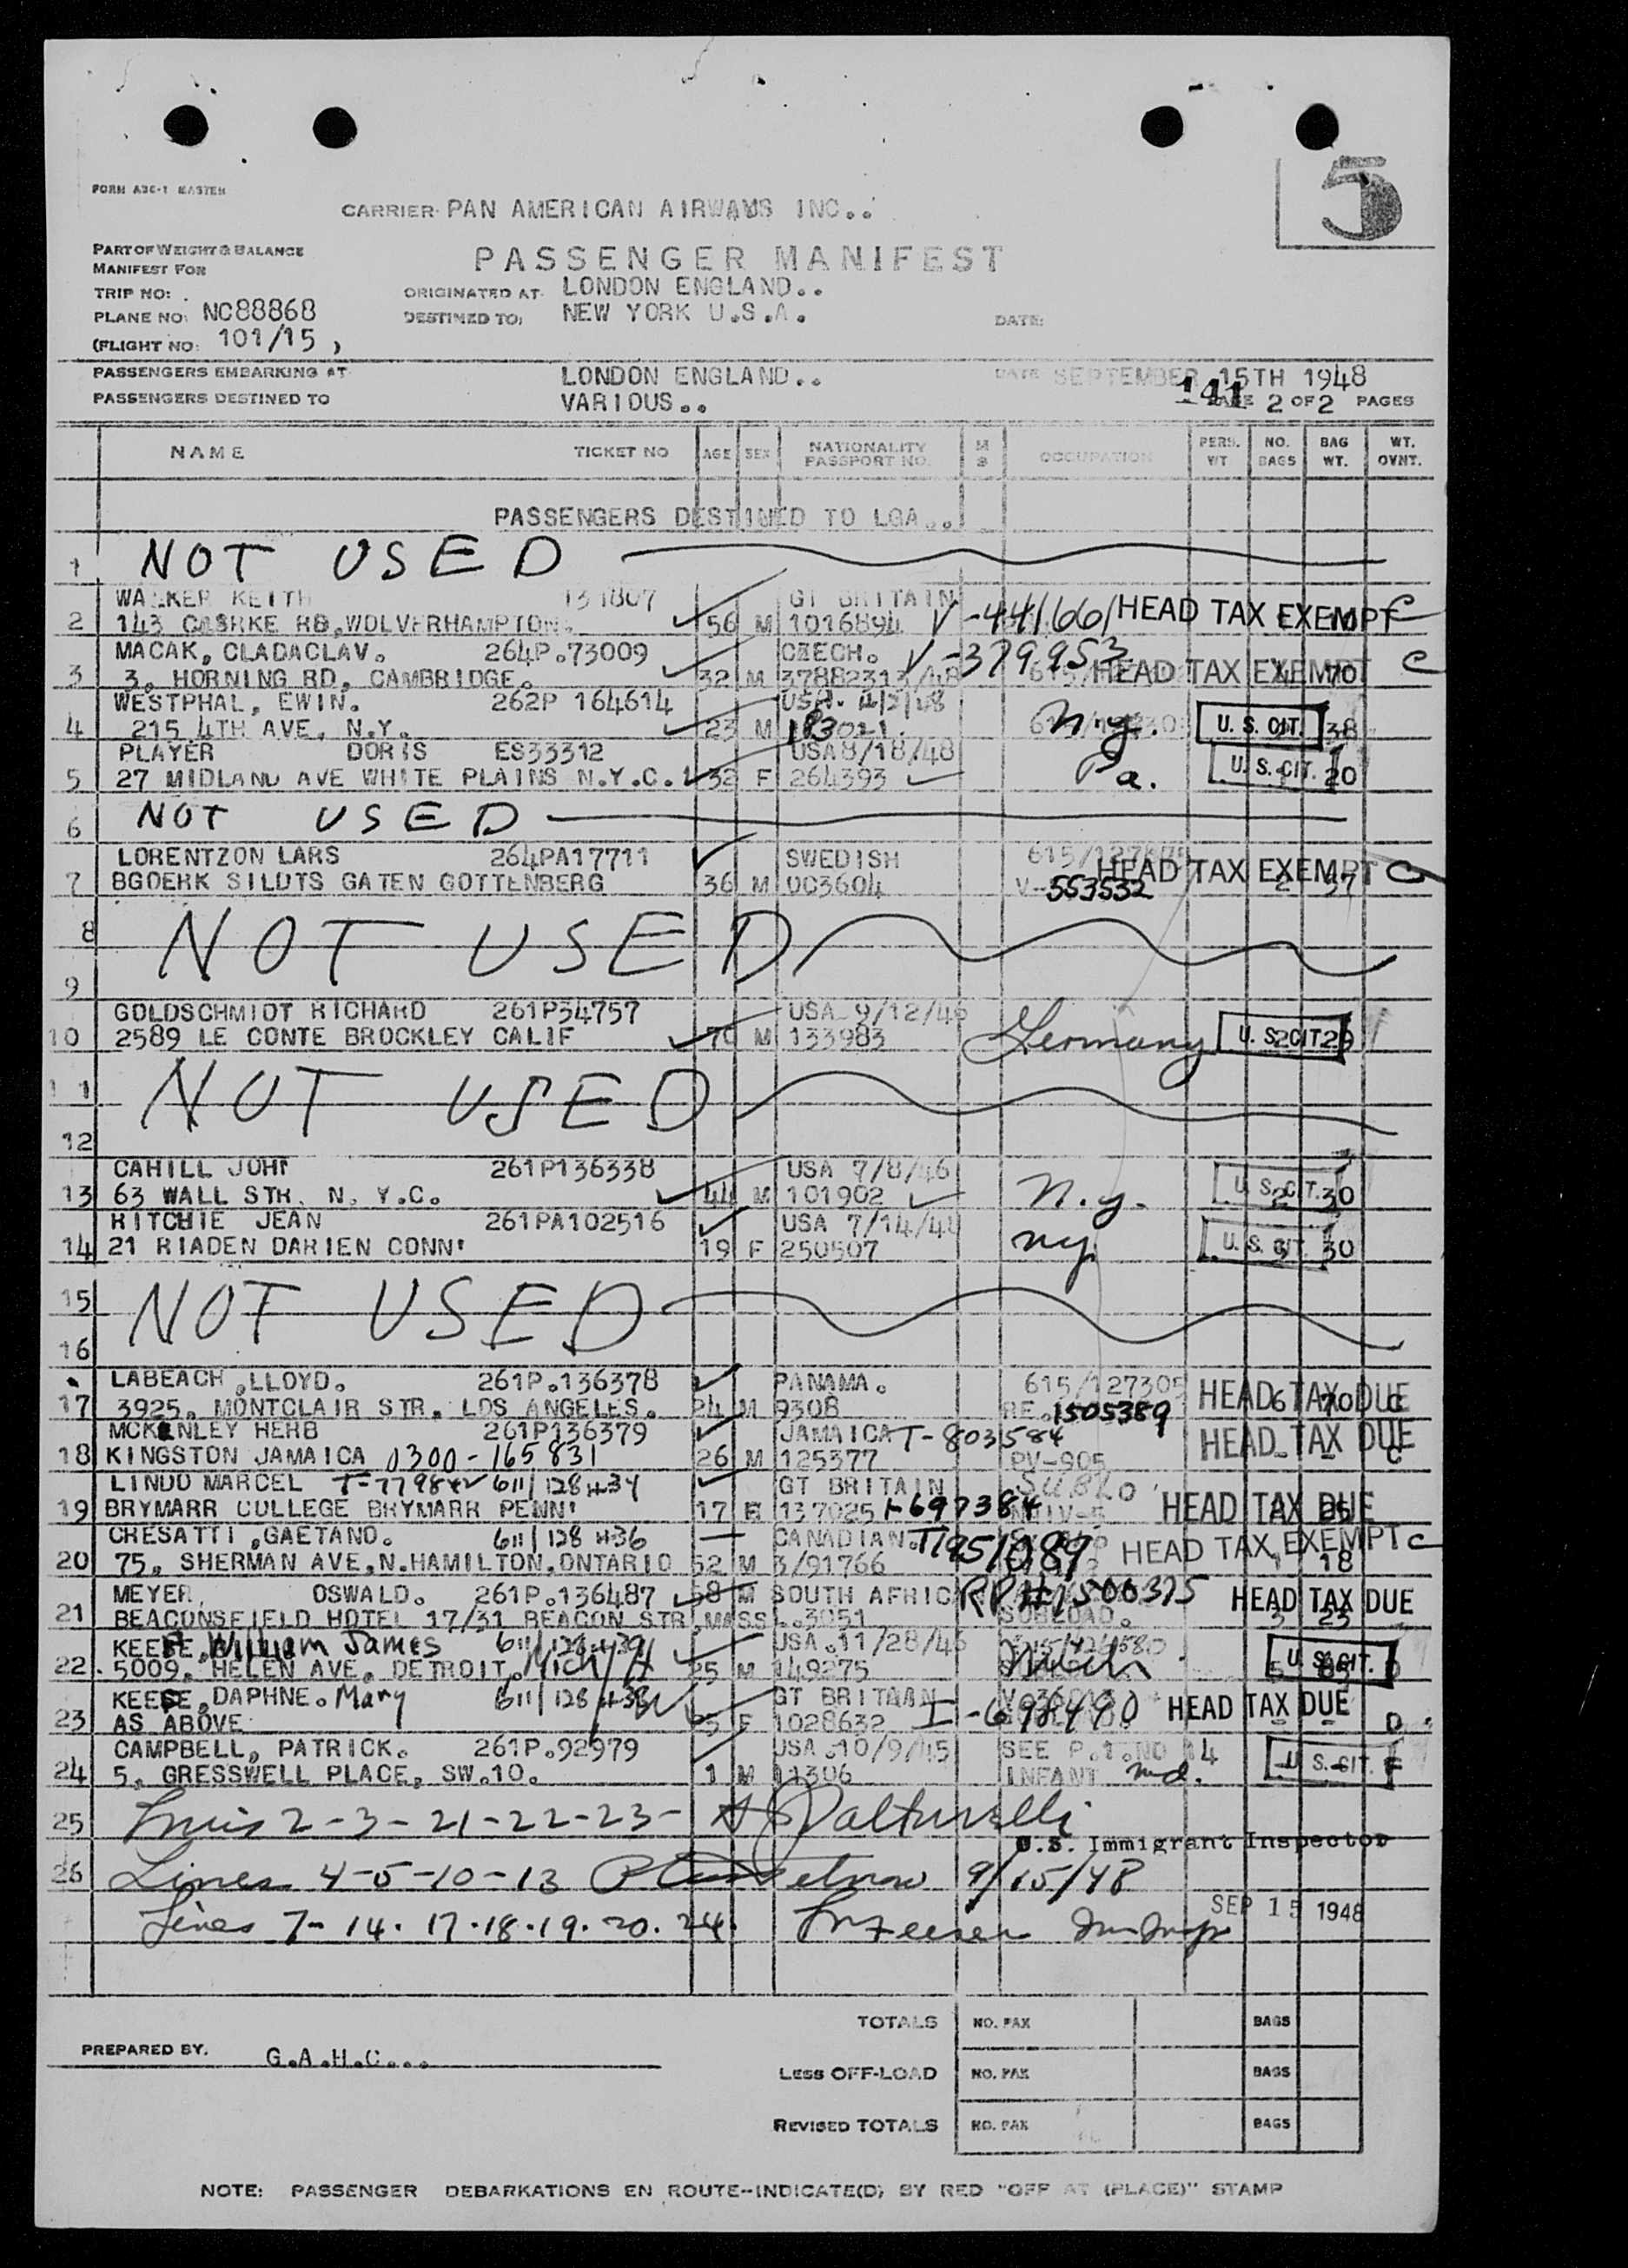 5
FORM ABC-1 MASTER
CARRIER PAN AMERICAN AIRWAYS INC..
PART OF WEIGHT & BALANCE
MANIFEST FOR
PASSENGER MANIFEST
TRIP NO:
ORIGINATED AT LONDON ENGLAND..
PLANE NO: NC88868
DESTINED TO: NEW YORK U.S.A.
DATE:
(FLIGHT NO: 101/15 )
PASSENGERS EMBARKING AT LONDON ENGLAND.. DATE SEPTEMBER 15TH 1948
PASSENGERS DESTINED TO VARIOUS.. 141 PAGE 2 OF 2 PAGES
NAME TICKET NO AGE SEX NATIONALITY PASSPORT NO. OCCUPATION PERS. WT NO. BAGS BAG WT. WT. OVNT.
PASSENGERS DESTINED TO LGA..
1 NOT USED
WALKER KEITH 131807 GT BRITAIN
2 WOLVERHAMPTON. 56 M 1016894 V-441661 HEAD TAX EXEMPT C
MACAK, CLADACLAV. 264P.73009 CZECH. V-379953
3 3, HORNING RD, CAMBRIDGE. 32 M HEAD TAX EXEMPT 70 C
WESTPHAL, EWIN. 262P 164614 USA.
4 215 4TH AVE, N.Y. 23 M N.y. U. S. CIT. 38
PLAYER DORIS ES33312 USA 8/18/48
5 27 MIDLAND AVE WHITE PLAINS N.Y.C. 32 F 264393 Pa. U. S. CIT. 20
6 NOT USED
LORENTZON LARS 264PA17711 SWEDISH
7 BGOERK SILDTS GATEN GOTTENBERG 36 M DC3604 V-553532 HEAD TAX EXEMPT C
8 NOT USED
9
GOLDSCHMIDT RICHARD 261P34757 USA 9/12/46
10 2589 LE CONTE BROCKLEY CALIF 70 M 133983 Germany U. S. CIT.
11 NOT USED
12
CAHILL JOHN 261P136338 USA 7/8/46
13 63 WALL STR. N. Y.C. 44 M 101902 N.y. U. S. CIT. 30
RITCHIE JEAN 261PA102516 USA 7/14/48
14 21 RIADEN DARIEN CONN' 19 F 250507 ny U. S. CIT. 30
15 NOT USED
16
LABEACH ,LLOYD. 261P.136378 PANAMA. 615/127305
17 3925, MONTCLAIR STR, LOS ANGELES. 24 M 9308 RE.1505389 HEAD TAX DUE C
MCKENLEY HERB 261P136379 JAMAICA T-803584
18 KINGSTON JAMAICA 0300-165831 26 M 125377 PV-905 HEAD TAX DUE C
LINDO MARCEL 611/128434 GT BRITAIN
19 BRYMARR COLLEGE BRYMARR PENN' 17 137025 I-697384 HEAD TAX DUE
CRESATTI ,GAETANO. 611/128436 CANADIAN.
20 75, SHERMAN AVE,N.HAMILTON,ONTARIO 52 M 3/91766 HEAD TAX EXEMPT C 18
MEYER, OSWALD. 261P.136487 58 M SOUTH AFRIC RP#1500375 HEAD TAX DUE
21 BEACONSFIELD HOTEL 17/31 BEACON STR,MASS 3051 3 23
KEEFE, William James USA.11/28/46
22. 5009, HELEN AVE, DETROIT, Mich 25 M 149275 Mich U. S. CIT.
KEEFE,DAPHNE. Mary 611/128438 GT BRITAIN
23 AS ABOVE 25 F 1028632 I-698490 HEAD TAX DUE D
CAMPBELL, PATRICK. 261P.92979 USA.10/9/45 SEE P.1.NO 14
24 5, GRESSWELL PLACE, SW.10. 1 M 11306 INFANT Md. U. S. CIT. F
25 Lines 2-3-21-22-23-
U.S. Immigrant Inspector
26 Lines 4-5-10-13 9/15/48
SEP 15 1948
Lines 7-14-17-18-19-20-24
TOTALS NO. PAX BAGS
PREPARED BY. G.A.H.C...
LESS OFF-LOAD NO. PAX BAGS
REVISED TOTALS NO. PAX BAGS
NOTE: PASSENGER DEBARKATIONS EN ROUTE--INDICATE(D) BY RED "OFF AT (PLACE)" STAMP